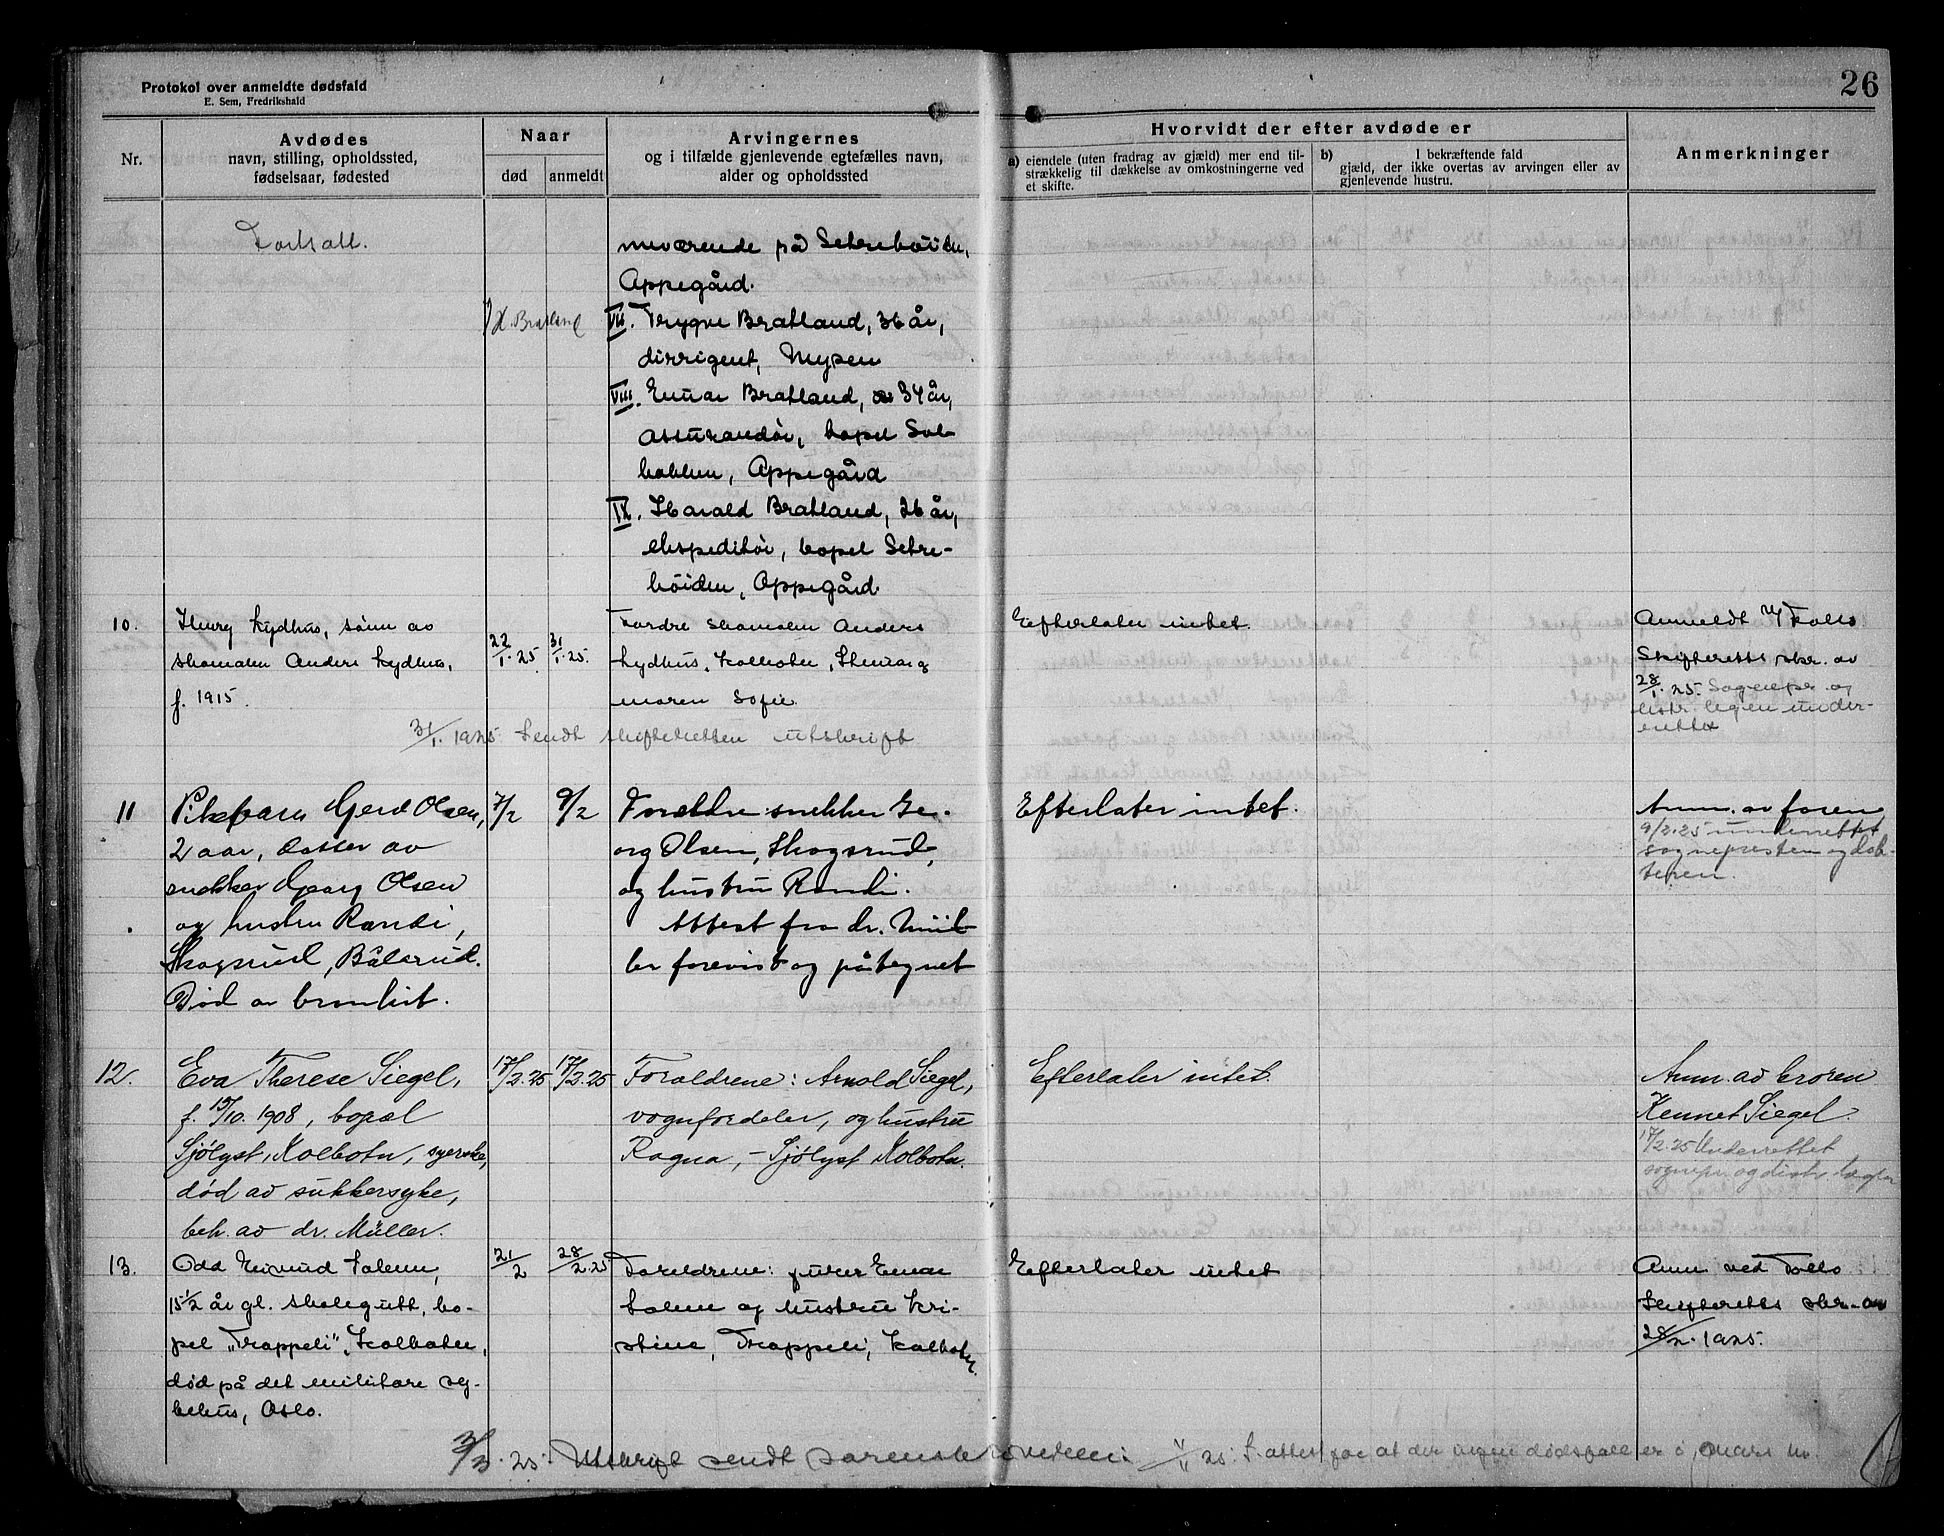 Protokol over anmeldte dødsfald
E. Sem, Fredrikshald
26
Nr.
Avdødes
navn, stilling, opholdssted,
fødselsaar, fødested
Naar
død
anmeldt
Arvingernes
og i tilfælde gjenlevende egtefælles navn,
alder og opholdssted
Hvorvidt der efter avdøde er
a) eiendele (uten fradrag av gjæld) mer end til-
strækkelig til dækkelse av omkostningerne ved
et skifte.
b) I bekræftende fald
gjæld, der ikke overtas av arvingen eller av
gjenlevende hustru.
Anmerkninger
Fortsatt.
nuværende på Setrehöiden,
Appegård.
Bratland
VII. Trygve Bratland, 36 år,
dirrigent, Mysen
VIII. Einar Bratland, 34 år,
assurandör, bopel Sol-
bakken, Appegård
IX. Harald Bratland, 26 år,
ekspeditör, bopel Setre-
höiden, Appegård
10.
Henry Lydhus, sönn av
skomaker Anders Lydhus,
f. 1915
22/1.25
31/1.25.
Fordre skomaker Anders
Lydhus, Kolbotn, og
maren Sofie
Efterlater intet.
Anmeldt v/ Follo
Skifteretts skr. av
28/1.25. Sognepr. og
distr. legen under-
rettet
31/1.1925 Sendt skifteretten utskrift
11
Pikebarn Gerd Olsen,
2 aar, datter av
snekker Georg Olsen
og hustru Randi,
Skogsrud, Bålerud.
Död av bronkit.
7/2
9/2
Foreldre: snekker Ge-
org Olsen, Skogsrud,
og hustru Randi.
Attest fra dr. Mül-
ler forevist og påtegnet
Efterlater intet.
Anm. av faren
9/2.25 underrettet
sognepresten og dok-
teren.
12.
Eva Therese Siegel,
f. 15/10.1908, bopæl
Sjølyst, Kolbotn, syerske,
død av sukkersyke,
beh. av dr. Müller.
17/2.25
17/2.25
Foreldrene: Arnold Siegel,
vognfordeler, og hustru
Ragna, - Sjølyst Kolbotn.
Efterlater intet.
Anm. av broren
Kennet Siegel.
17/2.25 Underrettet
sognepr og distr. lægen
13.
Odd Eivind Solem,
15 1/2 år gl. skolegutt, bo-
pel "Trappeli", Kolbotn,
död på det militære sy-
kehus, Oslo.
21/2
28/2.25
Foreldrene: Einar
Solem og hustru Kri-
stine, Trappeli, Kolbotn.
Efterlater intet
Anm ved Follo
Skifteretts skr. av
28/2.1925.
3/3.25: Utskrift sendt sorenskriveren:
25: at der ingen dödsfall er i mars